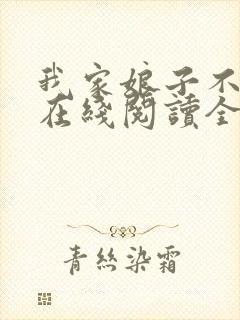 我家娘子不
在綫閱讀全
青絲染霜